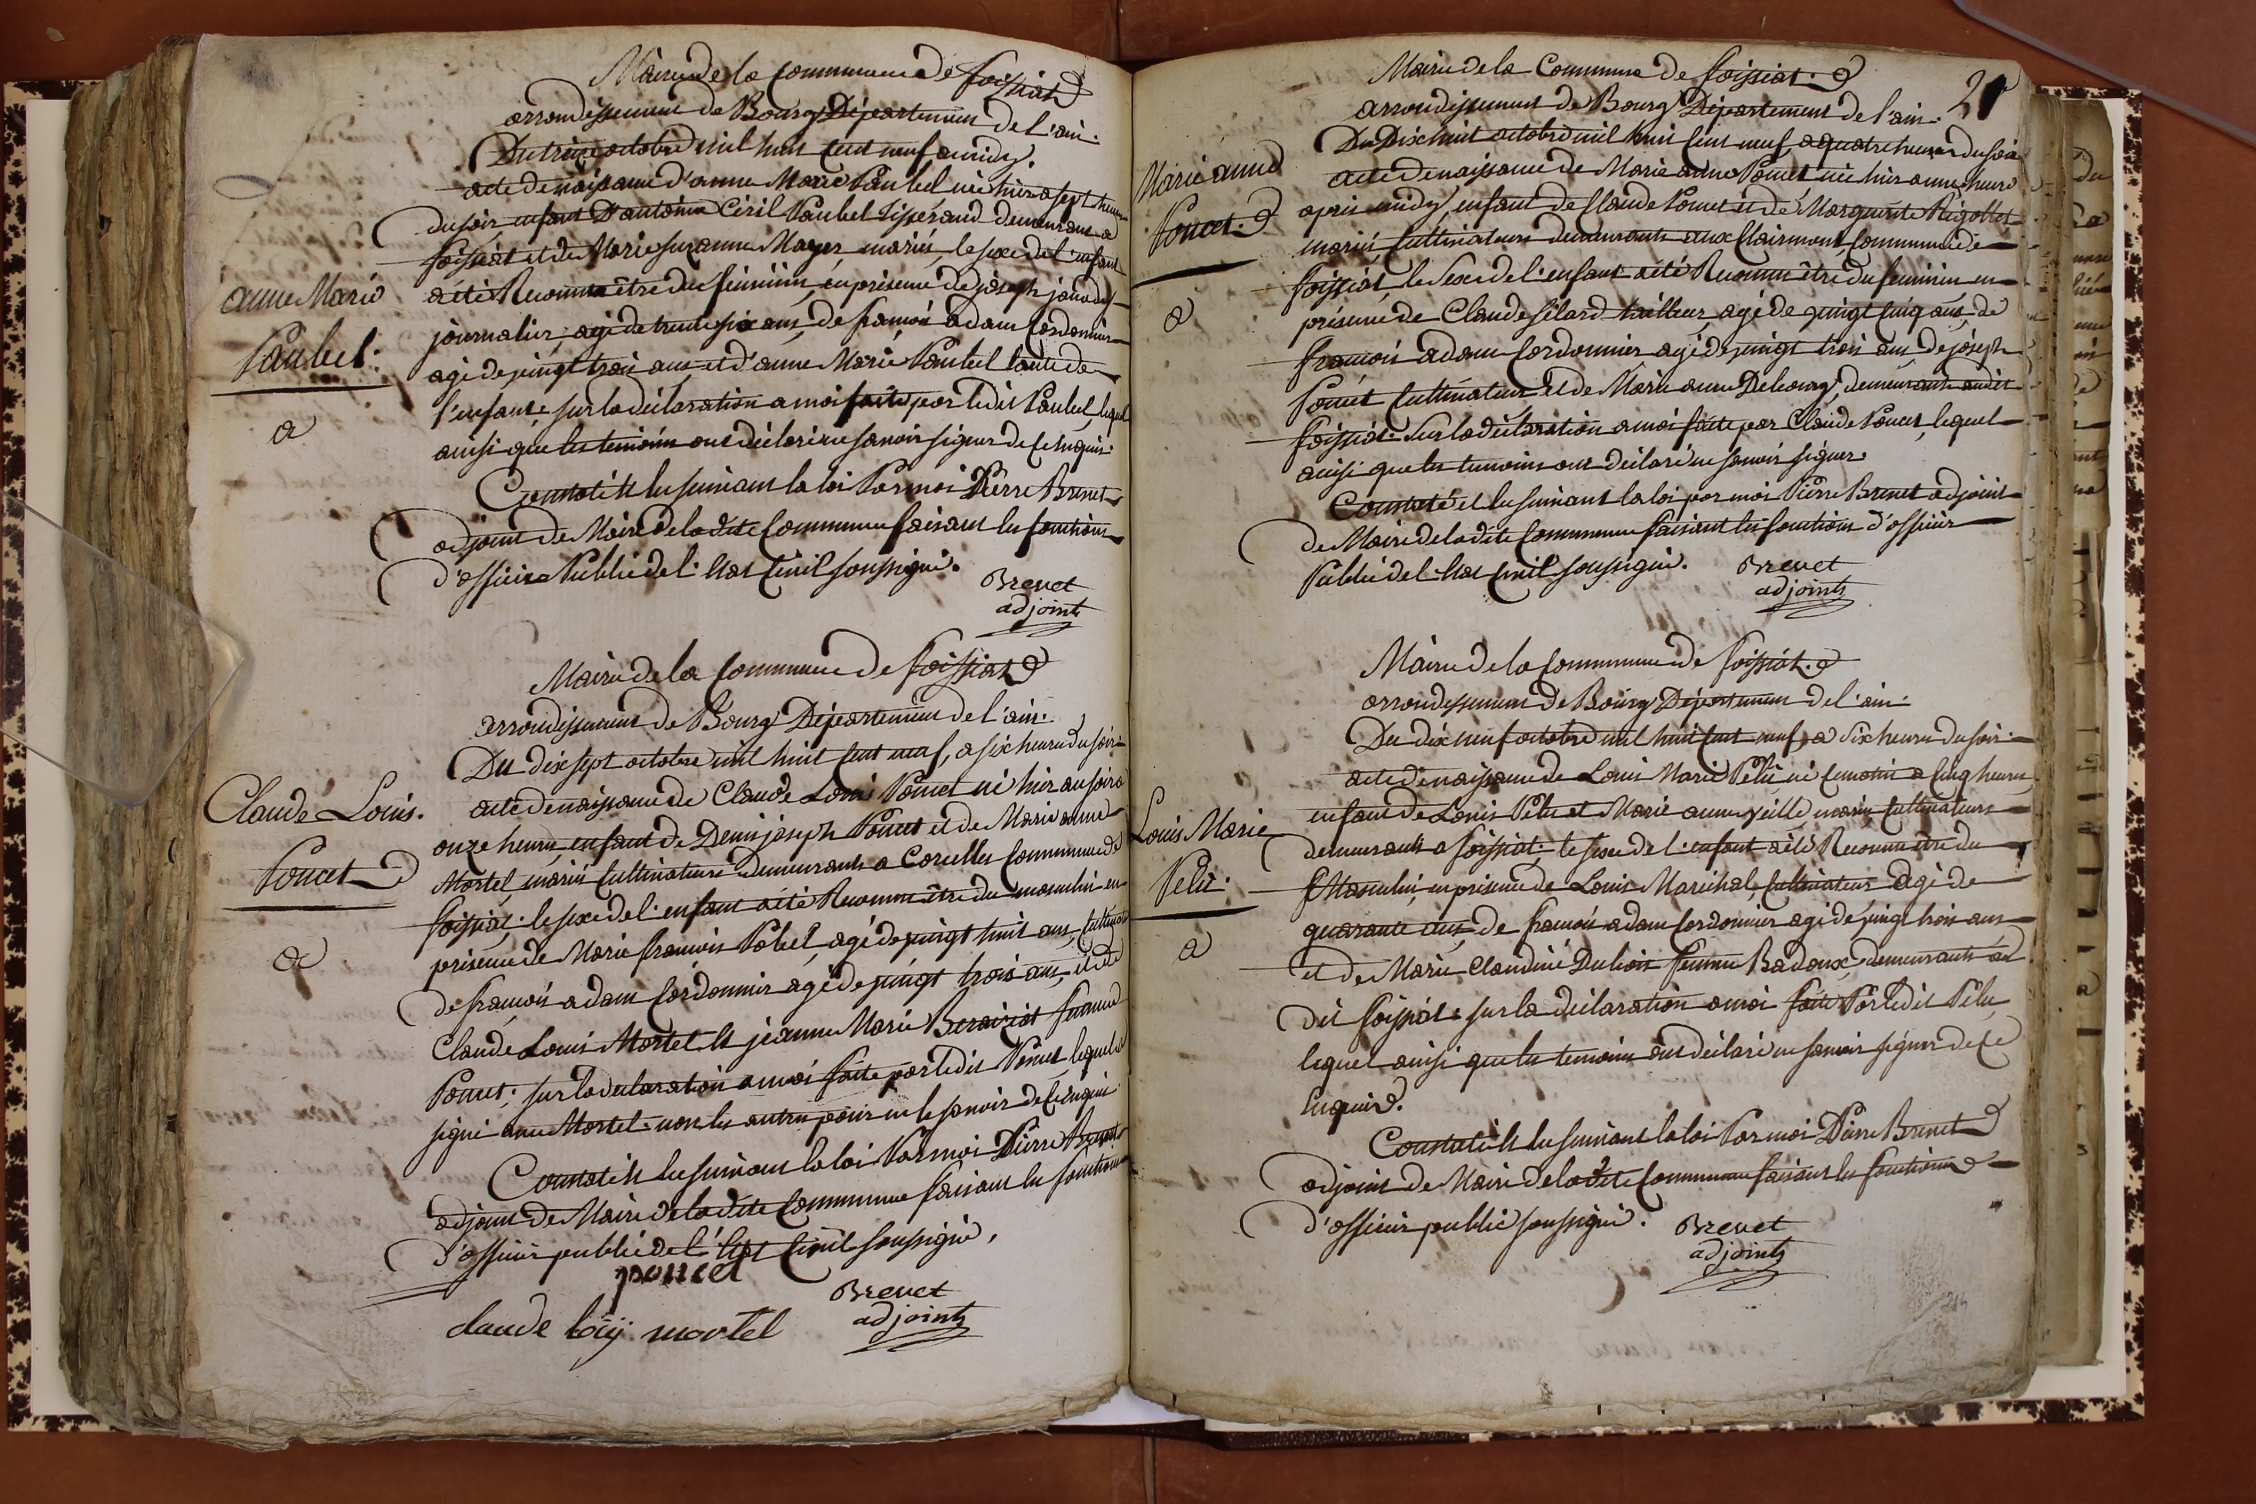 Mairie de la Commune de foissiat
arrondissement de Bourg Département de l'ain.
Du treize octobre mil huit cent neuf a midy.
acte de naissance d'anne Marie Paubel née hier a sept heures
du soir enfant D'antoine Ciril Paubel Tisserand demeurant a
foissiat et de Marie suzanne Mayer mariés, le sexe de l'enfant
a été Reconnu être du féminin, en présence de joseph
journalier, agé de trente six ans, de françois adam Cordonnier
agé de vingt trois ans et d'anne Marie Paubel tante de
l'enfant, sur la déclaration a moi faite par ledit Paubel, lequel
ainsi que les temoins ont déclaré ne savoir signer de ce enquis.
Constaté et lu suivant la loi Par moi Pierre Brevet
adjoint de Maire de la dite Commune faisant les fonctions
d'officier Public de l'état Civil soussigné.
Brevet
adjoint
anne Marie
Paubel.
a
Mairie de la Commune de foissiat
arrondissement de Bourg Département de l'ain.
Du dix sept octobre mil huit cent neuf, a six heures du soir
acte de naissance de Claude Louis Poncet né hier au soir a
onze heures, enfant de Denis joseph Poncet et de Marie anne
Mortel, mariés Cultivateurs Demeurants a Corcelles Commune de
foissiat; le sexe de l'enfant a été Reconnu être du masculin en
présence de Marie françois Pobel, agé de vingt huit ans,
de françois adam Cordonnier agé de vingt trois ans, et de
Claude Louis Mortel et jeanne Marie femme
Poncet; sur la declaration a moi faite par ledit Poncet, lequel a
signé avec Mortel non les autres pour ne le savoir de ce enquis
Constaté et lu suivant la loi Par moi Pierre Brevet
adjoint de Maire de la dite Commune faisant les fonctions
d'officier public de l'état Civil soussigné,
poncet
Brevet
adjoint
claude loüy mortel
Claude Louis.
Poncet
a
21
Mairie de la Commune de foissiat.
arrondissement de Bourg Département de l'ain.
Du Dix huit octobre mil huit cent neuf, a quatre heures du soir
acte de naissance de Marie anne Poncet née hier a une heure
apris midy, enfant de Claude Poncet et de Marguerite Rigollet
mariés, Cultivateurs demeurants aux Clairmont, Commune de
foissiat, le Sexe de l'enfant a été Reconnu être du feminin en
présence de Claude silard tailleur, agé de vingt cinq ans, de
françois adam Cordonnier agé de vingt trois ans, de joseph
Poncet Cultivateur et de Marie anne Debourg, demeurants audit
foissiat. Sur la déclaration a moi faite par Claude Poncet, lequel
ainsi que les temoins ont déclaré ne savoir signer.
Constaté et lu suivant la loi par moi Pierre Brevet adjoint
de Maire de la dite Commune faisant les fonctions d'officier
Public de l'état Civil soussigné.
Brevet
adjoint
Marie anne
Poncet.
a
Mairie de la Commune de foissiat.
arrondissement de Bourg Département de l'ain.
Du dix neuf octobre mil huit cent neuf, a Six heures du soir.
acte de naissance de Louis Marie Pelu né ce matin a cinq heures,
enfant de Louis Pelu et Marie anne veille mariés Cultivateurs
demeurants a foissiat; le sexe de l'enfant a été Reconnu être du
Masculin, en présence de Louis Maréchal, Cultivateur, agé de
quarante ans, de françois adam Cordonnier agé de vingt trois ans
et de Marie Claudine Dubois femme Badoux, demeurants au
dit foissiat. sur la déclaration a moi faite Par ledit Pelu
lequel ainsi que les temoins ont déclaré ne savoir signer de ce
Enquis.
Constaté et lu suivant la loi Par moi Pierre Brevet
adjoint de Maire de la dite Commune faisant les fonctions
d'officier public soussigné.
Brevet
adjoint
Louis Marie
Pelu.
a